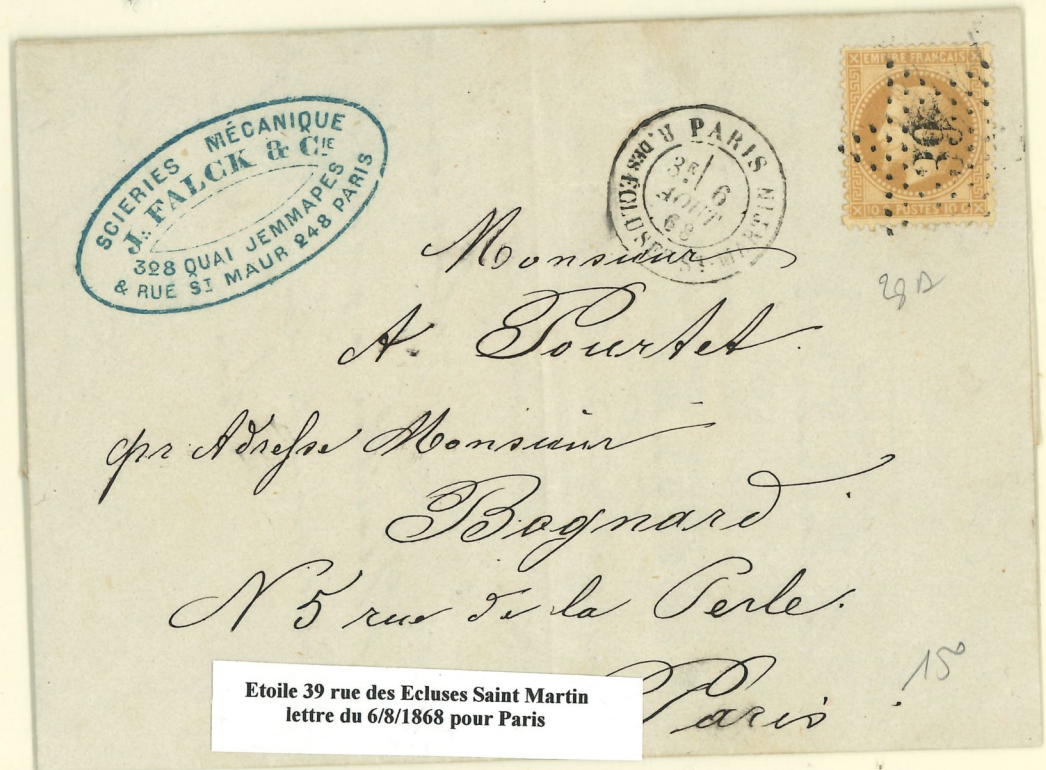 SCIERIES MÉCANIQUE
J. FALCK & CIE
328 QUAI JEMMAPES
& RUE ST MAUR 248 PARIS
PARIS
R. DES ECLUSES ST MARTIN
3E 6
AOUT
68
EMPIRE FRANÇAIS
39
10 C POSTES 10 C
28 A
Monsieur
A. Tourtet.
pr Adresse Monsieur
Bognard
N 5 rue de la Perle.
Paris
15
Etoile 39 rue des Ecluses Saint Martin
lettre du 6/8/1868 pour Paris